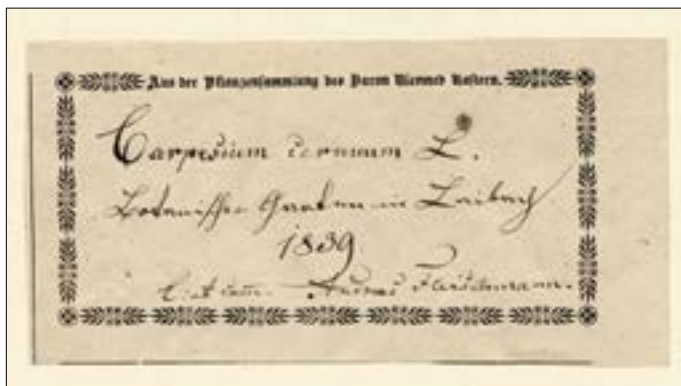 Aus der Pflanzensammlung des Baron
Carpesium cernuum L.
Botanischer Garten in Laibach
1839
Andreas Fleischmann.